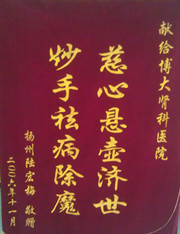 献给博大骨科医院
慈心悬壶济世
妙手祛病除魔
扬州陆宏梅 敬赠
二〇〇六年十一月